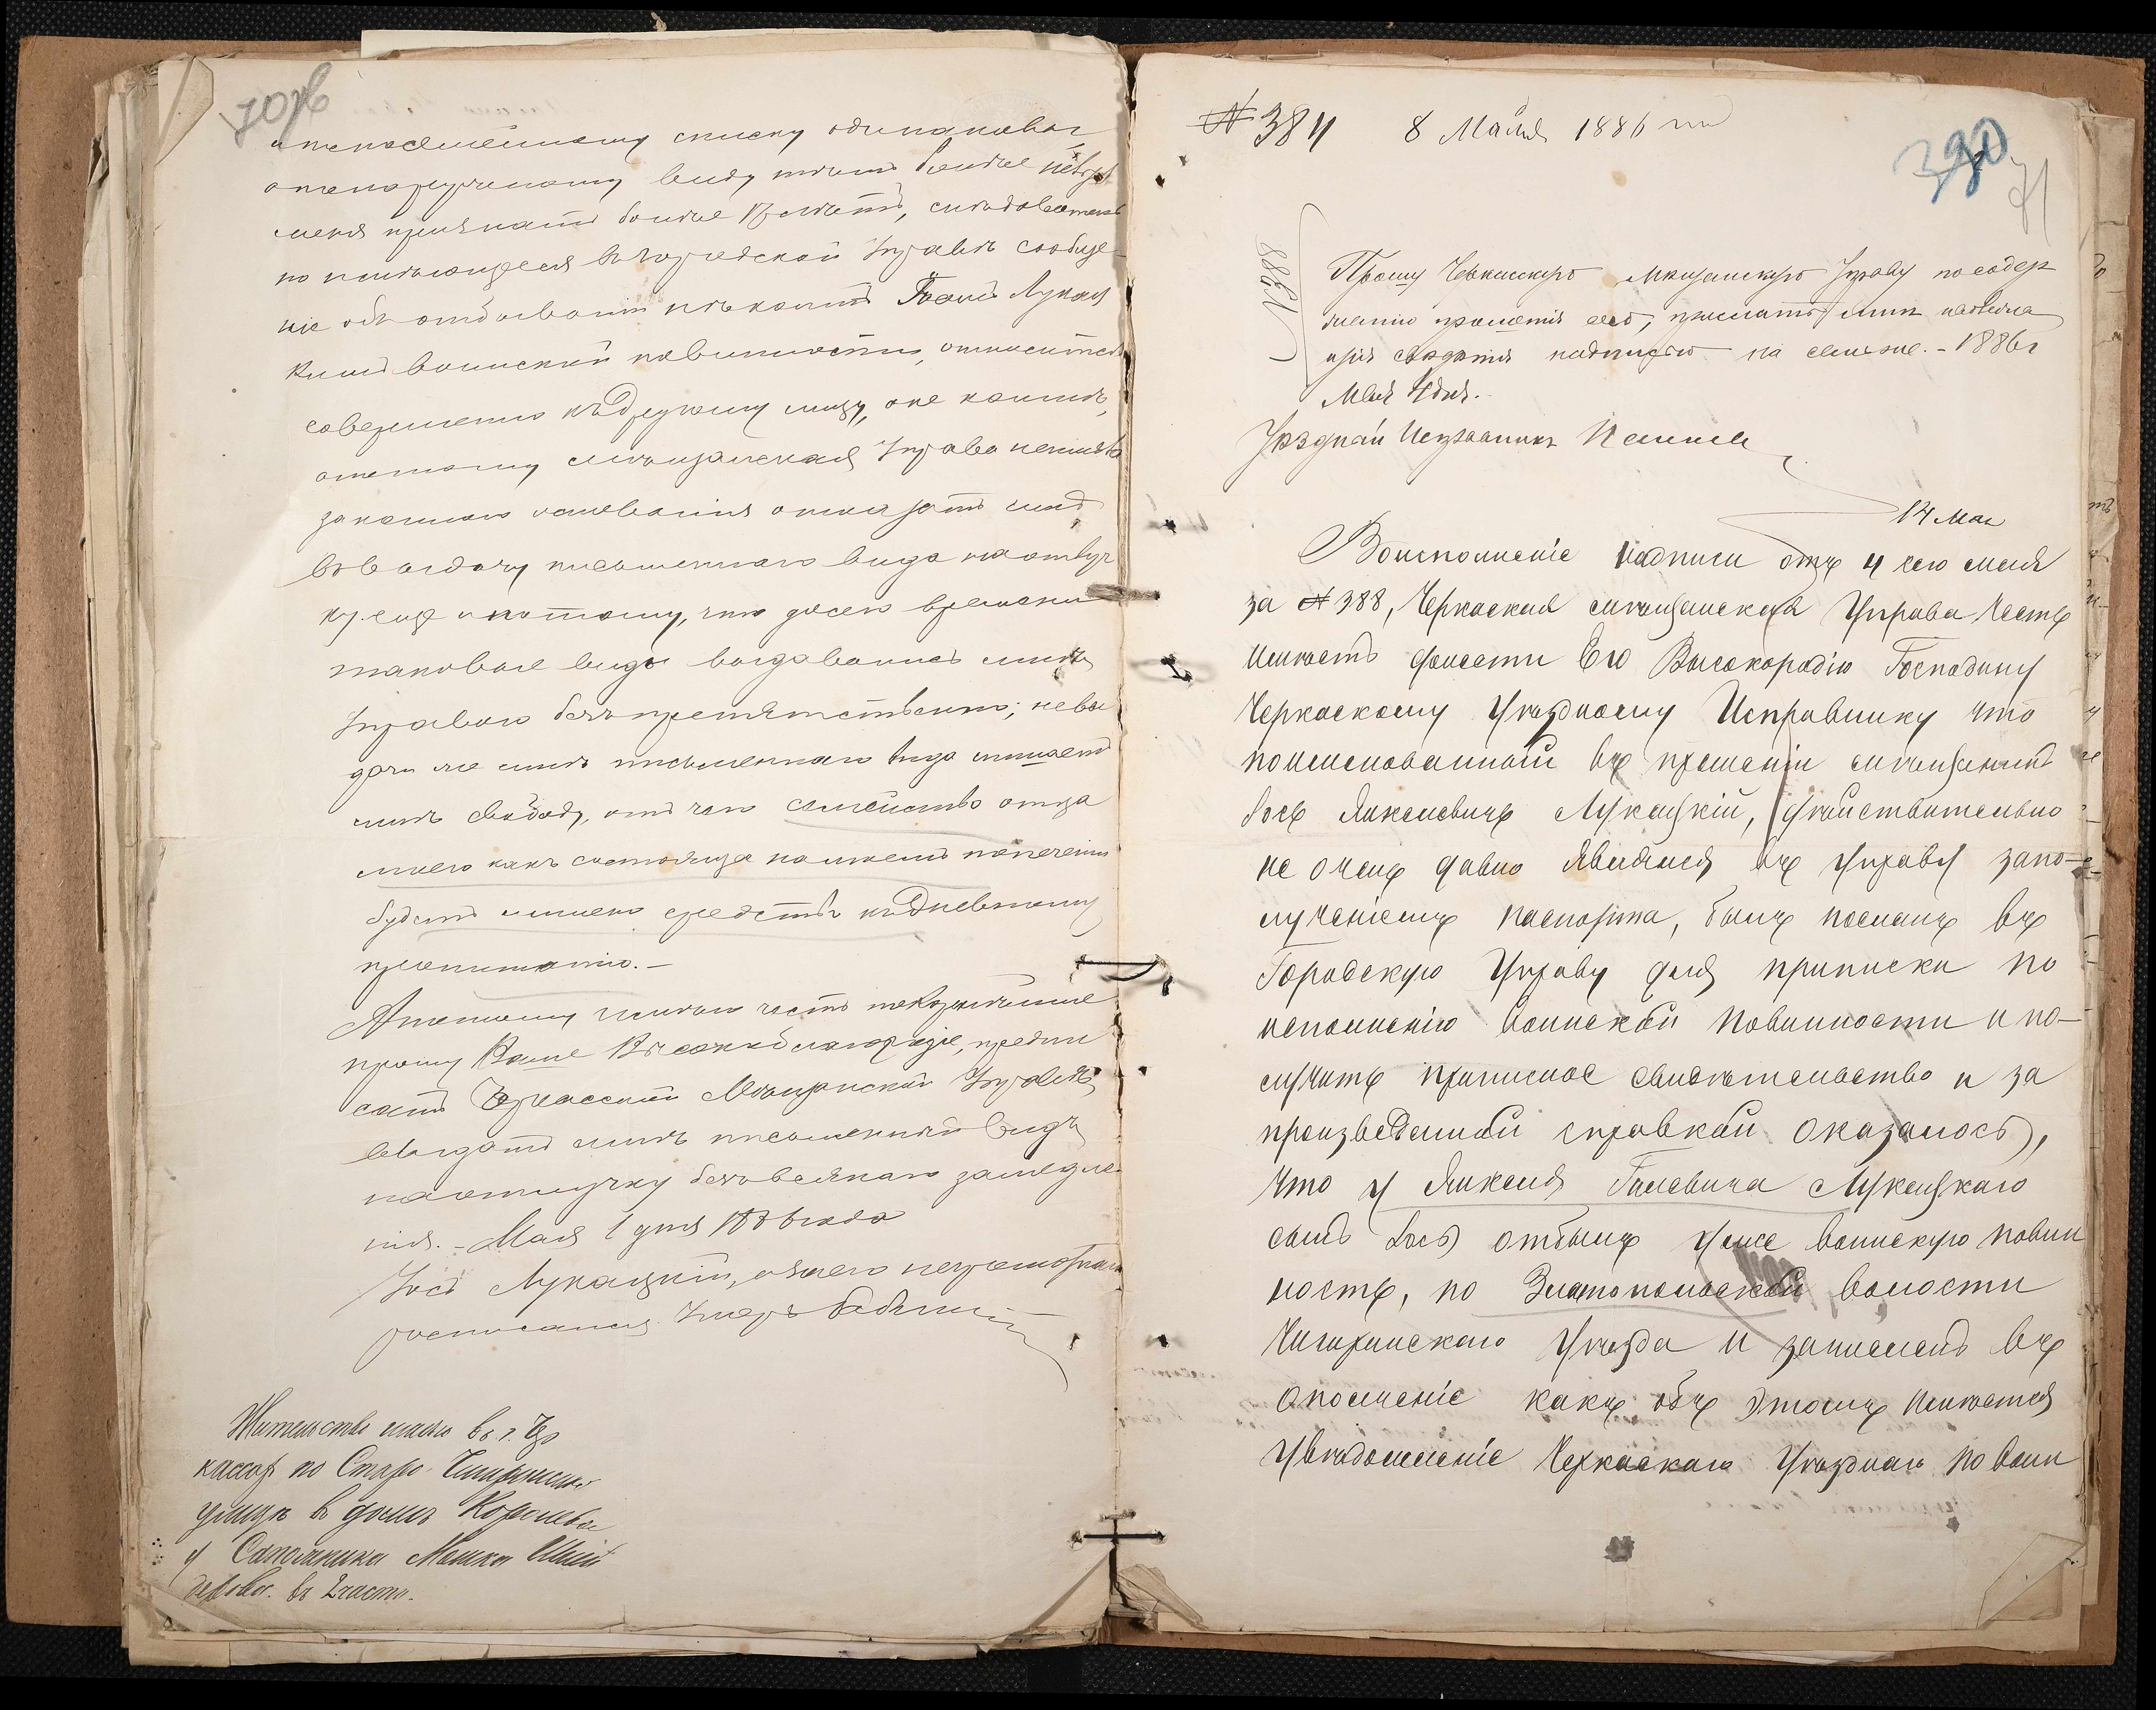 70об
списку одинаковаг
виду
меня признать болѣе
но имѣющееся въ городской Управѣ сообще-
ніе объ отбываніи нѣкоимъ Іосъ Лукац
кимъ воинской повинности, относится
совершенно къ другому лицу, а не ко мнѣ,
а потому мѣщанская Управа неимѣла
законнаго основанія отказать мнѣ
въ выдачу письменнаго вида на отлуч
ку еще и потому, что до сего времени
таковые виды выдавались мнѣ
Управою безпрепятственно; невы
дача же мнѣ письменнаго вида лишаетъ
мнѣ свободу, отъ чего семейство отца
моего какъ состояща на моемъ попеченіи
будетъ лишено средствъ къ дневному
пропитанію.-
А потому имѣю честь покорнѣйше
прошу Ваше Высокоблагородіе, предпи
сать Черкасской Мѣщанской Управѣ
выдать мнѣ письменный видъ
на отлучку безъ всякаго замедле
нія. - Мая 1 дня 1886 года
Іосъ Лукацкій, а за него неграмотнаго
росписался
Жительство имѣю въ г. Чер
кассах по Старо-Чигиринской
улицѣ въ домѣ Королева
у Сапожника Мошка
въ 2 части.
№ 384 8 Мая 1886 г.
390
71
№388
Прошу Черкасскую Мѣщанскую Управу по содер
жанію прошенія сего, прислать мнѣ
надписью на семъ же. - 1886 г
Мая 4 дня.
Уѣздный Исправникъ
14 Мая
Воисполненіе надписи отъ 4 сего мая
за № 388, Черкаская мѣщанская Управа Честь
имѣетъ донести Его Высокородію Господину
Черкаскому Уѣздному Исправнику что
поименованный въ прошеніи мѣщанинъ
Іось Янкелевичъ Лукацкій, дѣйствительно
не очень давно явился въ Управу за по-
лученіемъ паспорта, былъ посланъ въ
Городскую Управу для приписки по
исполненію воинской повинности и по-
лучить приписное свидѣтельство и за
произведенной справкой оказалось,
что у Янкеля Галевича Лукацкаго
сынъ Іось отбылъ уже воинскую повин
ность, по Златопольской волости
Чигиринскаго Уѣзда и зачисленъ въ
ополченіе какъ объ этомъ имѣется
увѣдомленіе Черкаскаго Уѣзднаго по воин